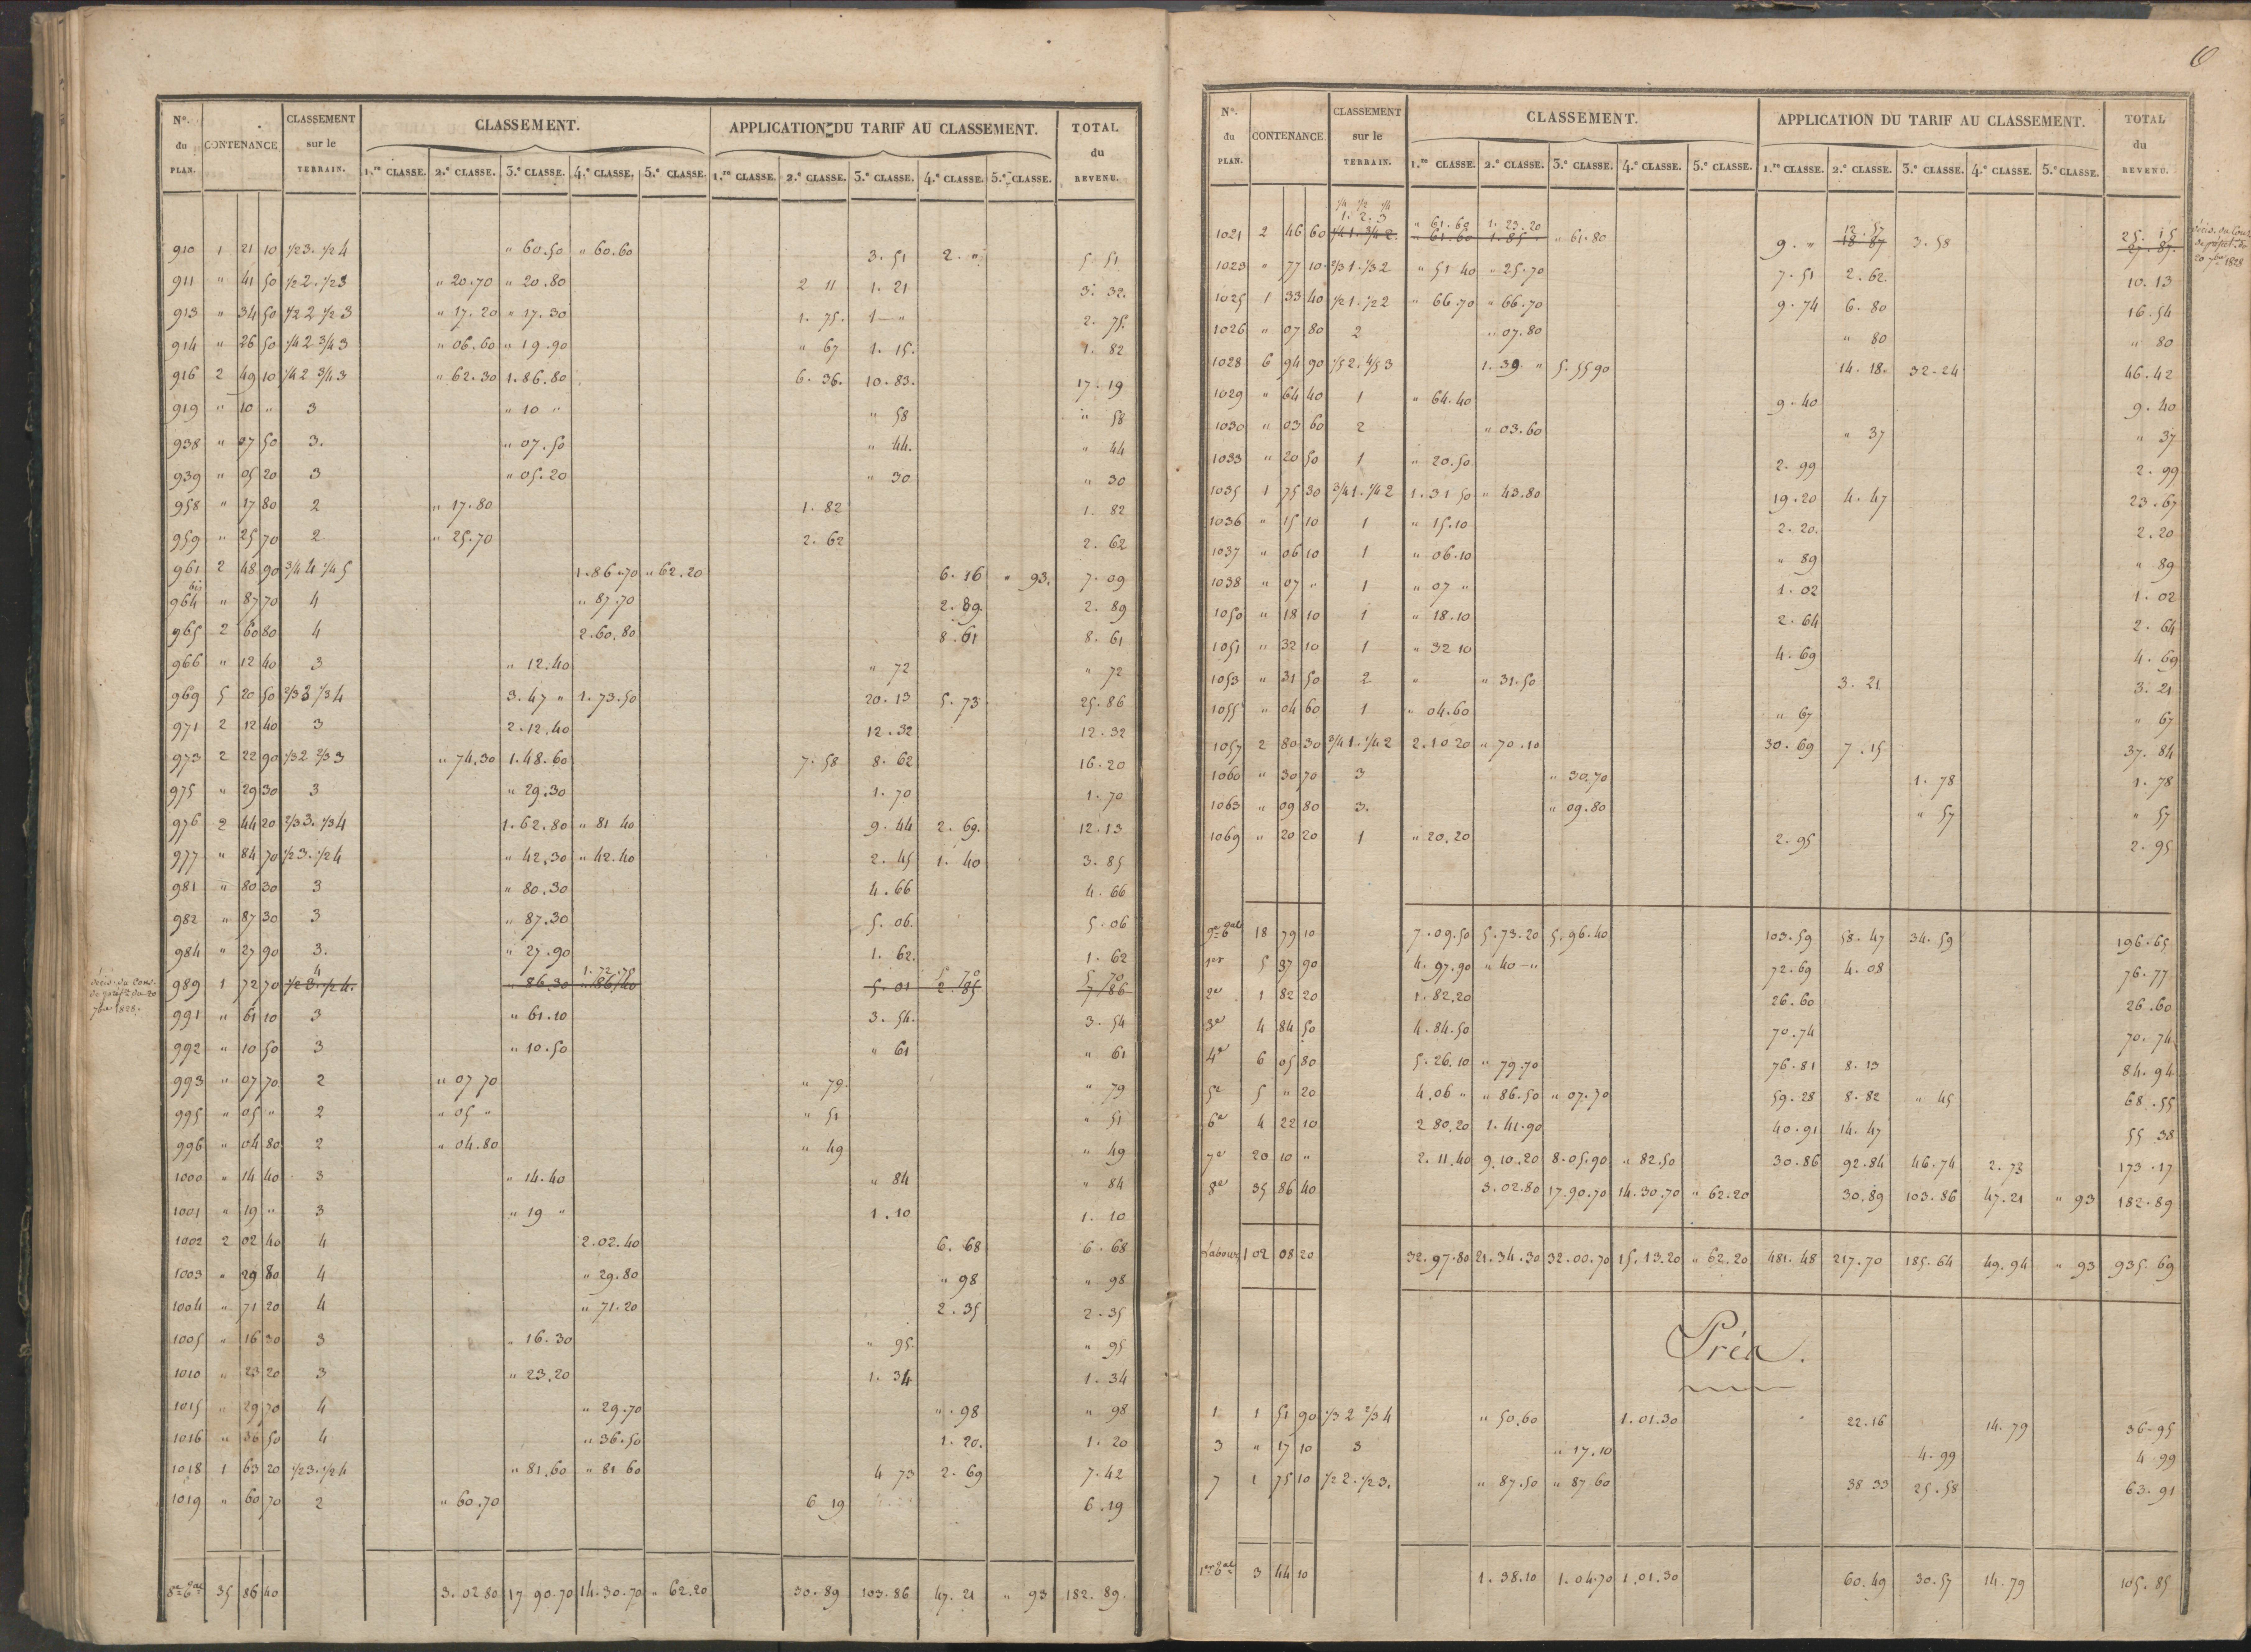 N°. du PLAN. CONTENANCE CLASSEMENT sur le TERRAIN. CLASSEMENT. APPLICATION DU TARIF AU CLASSEMENT. TOTAL du REVENU.
1.re CLASSE. 2.e CLASSE. 3.e CLASSE. 4.e CLASSE. 5.e CLASSE. 1.re CLASSE. 2.e CLASSE. 3.e CLASSE. 4.e CLASSE. 5.e CLASSE.
910 1 21 10 1/2 3. 1/2 4 " 60.50 " 60.60 3. 51 2. " 5 51
911 " 41 50 1/2 2. 1/2 3 " 20.70 " 20.80 2 11 1. 21 3. 32.
913 " 34 50 1/2 2 1/2 3 " 17. 20 " 17. 30 1. 75. 1 — " 2. 75.
914 " 26 50 1/4 2 3/4 3 " 06.60 " 19.90 " 67 1. 15. 1. 82
916 2 49 10 1/4 2 3/4 3 " 62.30 1.86.80 6. 36. 10.83. 17.19
919 " 10 " 3 " 10 " " 58 " 58
938 " 07 50 3. " 07.50 " 44. " 44
939 " 05 20 3 " 05.20 " 30 " 30
958 " 17 80 2 " 17.80 1. 82 1. 82
959 " 25 70 2 " 25.70 2. 62 2. 62
961 2 48 90 3/4 4 1/4 5 1.86.70 " 62.20 6. 16 " 93. 7.09
964 bis " 87 70 4 " 87.70 2.89. 2. 89
965 2 60 80 4 2.60.80 8.61 8. 61
966 " 12 40 3 " 12.40 " 72 " 72
969 5 20 50 2/3 3 1/3 4 3.47 " 1.73.50 20.13 5.73 25.86
971 2 12 40 3 2.12.40 12.32 12.32
973 2 22 90 1/3 2 2/3 3 " 74.30 1.48.60 7.58 8. 62 16.20
975 " 29 30 3 " 29.30 1. 70 1. 70
976 2 44 20 2/3 3. 1/3 4 1.62.80 " 81 40 9.44 2. 69. 12.13
977 " 84 70 1/2 3. 1/2 4 " 42.30 " 42.40 2. 45 1. 40 3. 85
981 " 80 30 3 " 80.30 4.66 4.66
982 " 87 30 3 " 87.30 5. 06. 5.06
984 " 27 90 3. " 27.90 1. 62. 1. 62
4 1.72.70 5 70 5 70
décis. du cons. de préf.re du 20 7bre 1828. 989 1 72 70 1/2 3. 1/2 4. " 86.30 " 86.40 5.01 2.85 7.86
991 " 61 10 3 " 61.10 3. 54. 3. 54
992 " 10 50 3 " 10.50 " 61 " 61
993 " 07 70 2 " 07 70 " 79. " 79
995 " 05 " 2 " 05 " " 51 " 51
996 " 04 80 2 " 04.80 " 49 " 49
1000 " 14 40 3 " 14.40 " 84 " 84
1001 " 19 " 3 " 19 " 1.10 1. 10
1002 2 02 40 4 2.02.40 6. 68 6.68
1003 " 29 80 4 " 29.80 " 98 " 98
1004 " 71 20 4 " 71.20 2.35 2.35
1005 " 16 30 3 " 16.30 " 95. " 95
1010 " 23 20 3 " 23.20 1. 34 1. 34
1015 " 29 70 4 " 29.70 " 98 " 98
1016 " 36 50 4 " 36.50 1. 20. 1. 20
1018 1 63 20 1/2 3. 1/2 4 " 81.60 " 81 60 4 73 2. 69 7.42
1019 " 60 70 2 " 60.70 6 19 6.19
8e fal 35 86 40 3. 02 80 17.90.70 14.30.70 " 62.20 30.89 103.86 47. 21 " 93 182.89.
N°. du PLAN. CONTENANCE. CLASSEMENT sur le TERRAIN. CLASSEMENT. APPLICATION DU TARIF AU CLASSEMENT. TOTAL du REVENU.
1.re CLASSE. 2.e CLASSE. 3.e CLASSE. 4.e CLASSE. 5.e CLASSE. 1.re CLASSE. 2.e CLASSE. 3.e CLASSE. 4.e CLASSE. 5.e CLASSE.
1/4 1/2 1/4
1. 2. 3 " 61.60 1. 23.20 12. 57 25. 15
1021 2 46 60 1/4 1. 3/4 2. " 61.60 1.85. " 61.80 9. " 18 87 3. 58 27. 87. décis. du Cons. de préfet. du 20 7bre 1828
1023 " 77 10 2/3 1. 1/3 2 " 51 40 " 25.70 7.51 2.62. 10.13
1025 1 33 40 1/2 1. 1/2 2 " 66.70 " 66.70 9.74 6.80 16.54
1026 " 07 80 2 " 07.80 " 80 " 80
1028 6 94 90 1/5 2. 4/5 3 1.39 " 5.55 90 14.18. 32.24 46.42
1029 " 64 40 1 " 64.40 9.40 9.40
1030 " 03 60 2 " 03.60 " 37 " 37
1033 " 20 50 1 " 20.50 2.99 2.99
1035 1 75 30 3/4 1. 1/4 2 1.31 50 " 43.80 19.20 4.47 23.67
1036 " 15 10 1 " 15.10 2.20. 2.20
1037 " 06 10 1 " 06.10 " 89 " 89
1038 " 07 " 1 " 07 " 1.02 1.02
1050 " 18 10 1 " 18.10 2.64 2.64
1051 " 32 10 1 " 32 10 4.69 4.69
1053 " 31 50 2 " " 31.50 3. 21 3. 21
1055 " 04 60 1 " 04.60 " 67 " 67
1057 2 80 30 3/4 1. 1/4 2 2.10 20 " 70.10 30.69 7.15 37.84
1060 " 30 70 3 " 30.70 1.78 1.78
1063 " 09 80 3. " 09.80 " 57 " 57
1069 " 20 20 1 " 20.20 2.95 2.95
9e fal 18 79 10 7.09.50 5.73.20 5.96.40 103.59 58.47 34.59 196.65
1er 5 37 90 4.97.90 " 40 — " 72.69 4.08 76.77
2e 1 82 20 1.82.20 26.60 26.60
3e 4 84 50 4.84.50 70.74 70.74
4e 6 05 80 5.26.10 " 79.70 76.81 8.13 84.94
5e 5 " 20 4.06 " " 86.50 " 07.70 59.28 8.82 " 45 68.55
6e 4 22 10 2 80.20 1.41.90 40.91 14.47 55 38
7e 20 10 " 2.11.40 9.10.20 8.05.90 " 82.50 30.86 92.84 46.74 2.73 173.17
8e 35 86 40 3.02.80 17.90.70 14.30.70 " 62.20 30.89 103.86 47.21 " 93 182.89
Labour 102 08 20 32.97.80 21.34.30 32.00.70 15.13.20 " 62.20 481.48 217.70 185.64 49.94 " 93 935.69
Prés.
1 1 51 90 1/3 2 2/3 4 " 50.60 1.01.30 22.16 14.79 36.95
3 " 17 10 3 " 17.10 4.99 4.99
7 1 75 10 1/2 2. 1/2 3. " 87.50 " 87 60 38 33 25.58 63.91
1er fal 3 44 10 1.38.10 1.04.70 1.01.30 60.49 30.57 14.79 105.85